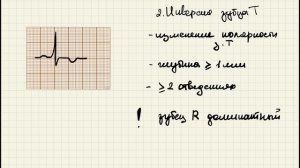 2. Инверсия зубца Т
- изменение полярности
з. Т
- глубина ≥ 1 мм
- ≥ 2 отведениях
! зубец R доминатной